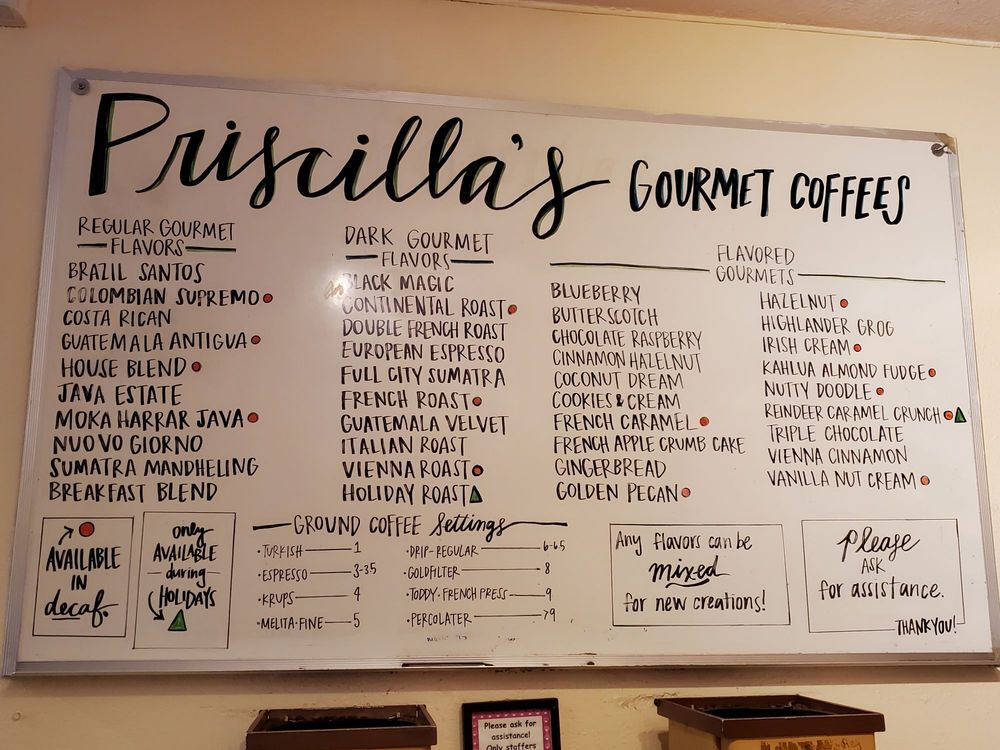 Priscilla's GOURMET COFFEES
REGULAR GOURMET
FLAVORS
BRAZIL SANTOS
COLOMBIAN SUPREMO
COSTA RICAN
GUATEMALA ANTIGUA
HOUSE BLEND
JAVA ESTATE
MOKA HARRAR JAVA
NUOVO GIORNO
SUMATRA MANDHELING
BREAKFAST BLEND
DARK GOURMET
FLAVORS
BLACK MAGIC
CONTINENTAL ROAST
DOUBLE FRENCH ROAST
EUROPEAN ESPRESSO
FULL CITY SUMATRA
FRENCH ROAST
GUATEMALA VELVET
ITALIAN ROAST
VIENNA ROAST
HOLIDAY ROAST
FLAVORED
GOURMETS
BLUEBERRY
BUTTERSCOTCH
CHOCOLATE RASPBERRY
CINNAMON HAZELNUT
COCONUT DREAM
COOKIES & CREAM
FRENCH CARAMEL
FRENCH APPLE CRUMB CAKE
GINGERBREAD
GOLDEN PECAN
HAZELNUT
HIGHLANDER GROG
IRISH CREAM
KAHLUA ALMOND FUDGE
NUTTY DOODLE
REINDEER CARAMEL CRUNCH
TRIPLE CHOCOLATE
VIENNA CINNAMON
VANILLA NUT CREAM
AVAILABLE
IN
decaf.
only
AVAILABLE
during
HOLIDAYS
GROUND COFFEE Settings
• TURKISH — 1
• ESPRESSO — 3-3.5
• KRUPS — 4
• MELITA-FINE — 5
• DRIP-REGULAR — 6-6.5
• GOLDFILTER — 8
• TODDY-FRENCH PRESS — 9
• PERCOLATER — >9
Any flavors can be
mixed
for new creations!
please
ASK
for assistance.
THANK YOU!
Please ask for
assistance!
Only staffers